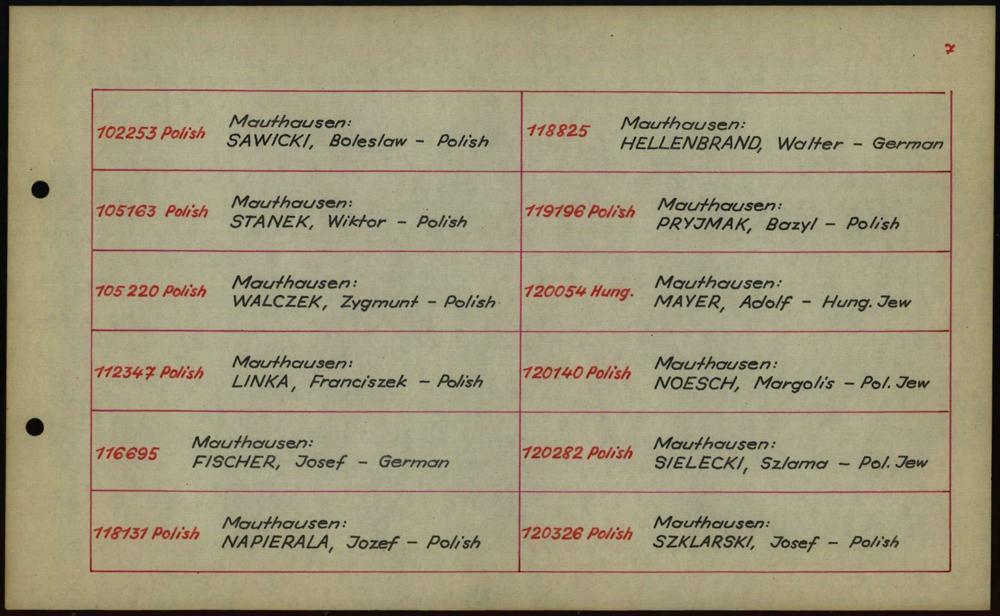 7
102253 Polish Mauthausen:
SAWICKI, Boleslaw - Polish
105163 Polish Mauthausen:
STANEK, Wiktor - Polish
105220 Polish Mauthausen:
WALCZEK, Zygmunt - Polish
112347 Polish Mauthausen:
LINKA, Franciszek - Polish
116695 Mauthausen:
FISCHER, Josef - German
118131 Polish Mauthausen:
NAPIERALA, Jozef - Polish
118825 Mauthausen:
HELLENBRAND, Walter - German
119196 Polish Mauthausen:
PRYJMAK, Bazyl - Polish
120054 Hung. Mauthausen:
MAYER, Adolf - Hung. Jew
120140 Polish Mauthausen:
NOESCH, Margolis - Pol. Jew
120282 Polish Mauthausen:
SIELECKI, Szlama - Pol. Jew
120326 Polish Mauthausen:
SZKLARSKI, Josef - Polish